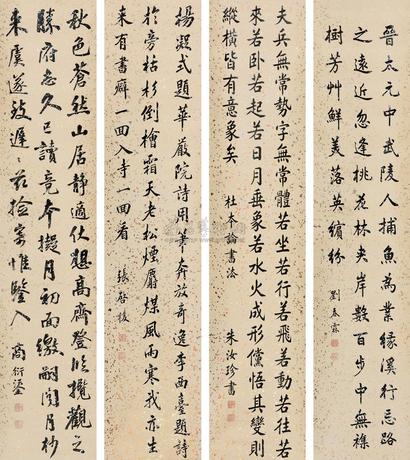 晉太元中武陵人捕魚為業緣溪行忘路
之遠近忽逢桃花林夾岸數百步中無襍
樹芳艸鮮美落英繽紛 劉春霖
夫兵無常勢字無常體若坐若行若飛若動若往若
來若卧若起若日月垂象若水火成形儻悟其變則
縱橫皆有意象矣 杜本論書法 朱汝珍書
楊凝式題華嚴院詩用筆奔放奇逸李西臺題詩
於旁枯杉倒檜霜天老松煙麝煤風雨寒我亦生
來有書癖一回入寺一回看 張啓後
秋色蒼然山居靜適伏想高齊登臨攬觀之
勝府志久已讀竟本擬月初面繳嗣因月杪
來虞遂致遲遲茲檢寄惟鑒入 商衍鎏